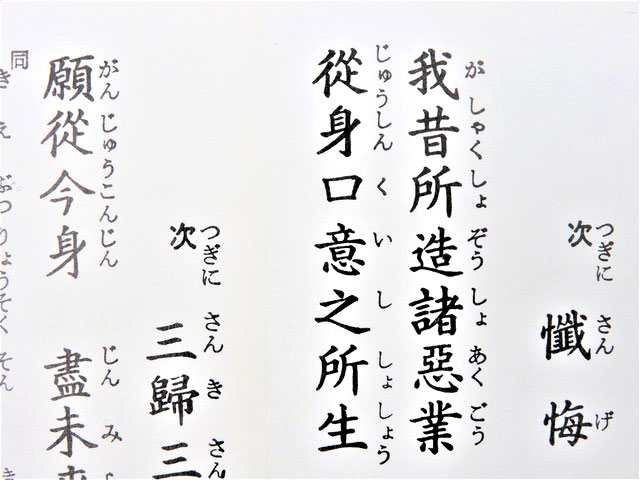 次 懺悔
つぎに さんげ
我昔所造諸惡業
がしゃくしょぞうしょあくごう
從身口意之所生
じゅうしんくいししょしょう
次 三歸三
つぎに さんきさん
願從今身 盡未来
がんじゅうこんじん じんみ
同
きえぶつりょうそくそん